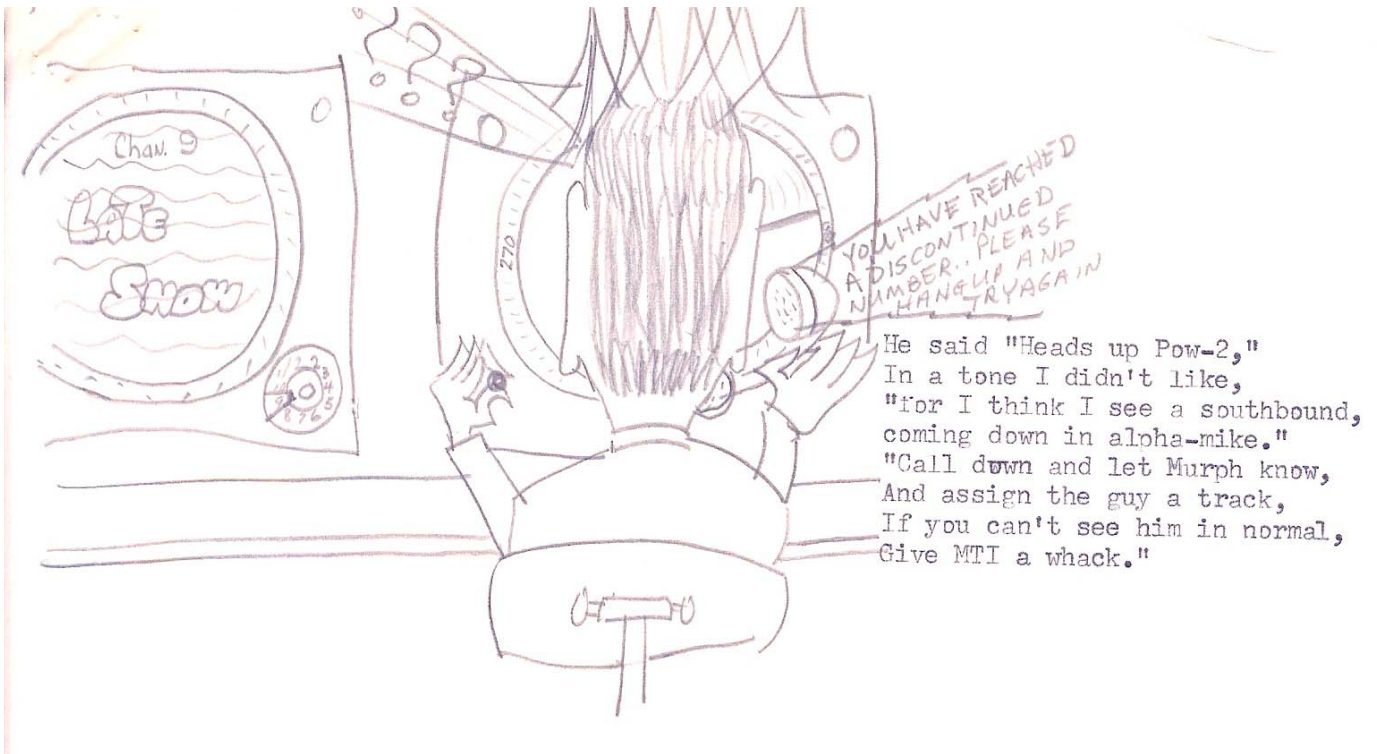 ? ? ?
Chan. 9
LATE
SHOW
270
1 2 3 4 5 6 7 8 9
YOU HAVE REACHED
A DISCONTINUED
NUMBER.. PLEASE
HANG UP AND
TRY AGAIN
He said "Heads up Pow-2,"
In a tone I didn't like,
"for I think I see a southbound,
coming down in alpha-mike."
"Call down and let Murph know,
And assign the guy a track,
If you can't see him in normal,
Give MTI a whack."